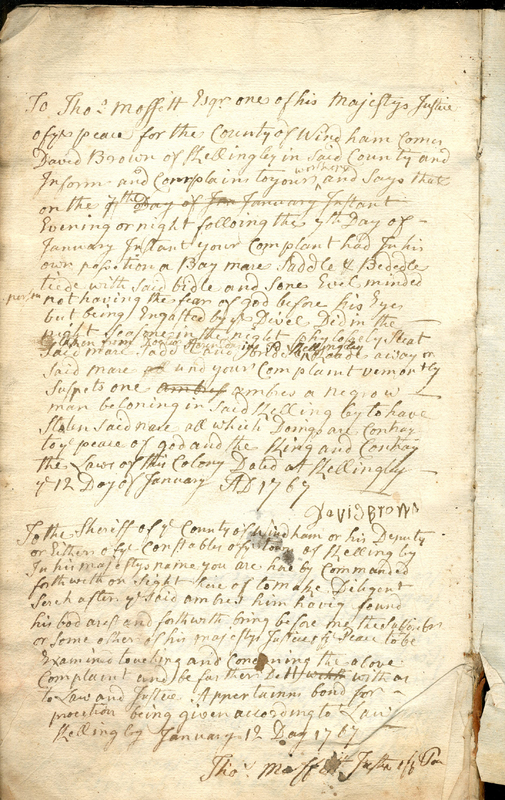 To Tho.s Moffitt Esqr one of his Majestys Justice
of ye peace for the County of Windham Comes
David Brown of Killingley in Said County and
Inform and Complains to your worship and Says that
on the 7th Day of Jan January Instant
Evening or night folloing the 7th Day of
January Instant your Complant had In his
own posistion a Bay mare Saddle & Bridle
tiede with Said bidle and Sone Evel minded
person not having the fear of god before his Eyes
but being Engasted by ye Divel Did in the
night Season in the night phylonely Steat
taken from David Brown in sd Killingley
Said mare Sadd and bridle Roade away or
Said mare and your Complant vemontly
Suspets one ambus ambes a negrow
man beloning in Said Killing by to have
Stalin Said mare all which Doings are Contray
to ye peace of god and the King and Contray
the Laws of this Colony Dated at Killingley
ye 12 Day of January AD 1767
David Brown
To the Sheriff of ye County of Windham or his Deputy
or Either of ye Constables of ye Town of Killing by
In his majestys name you are hereby Commanded
forthwith on Sight here of to make Diligent
Serch after ye Said ambes him havig found
his bod arest and forthwith bring before me the Subscriber
or Some other of his majestys Justices of ye Peace to be
Examined touching and Concerning the above
Complaint and be farther Delt with with as
to Law and Justice Appertainns bond for
prosecution being given according to Law
Killingby January 12 Day 1767
Tho.s Moffitt Justice of ye Pea